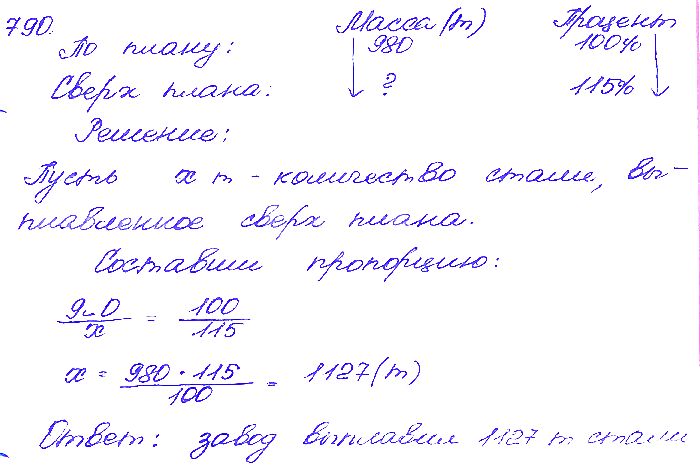 790. Масса (т) Процент
По плану: 980 100%
Сверх плана: ? 115%
Решение:
Пусть x т - количество стали, вы-
плавленное сверх плана.
Составим пропорцию:
980/x = 100/115
x = 980 · 115/100 = 1127 (т)
Ответ: завод выплавил 1127 т стали